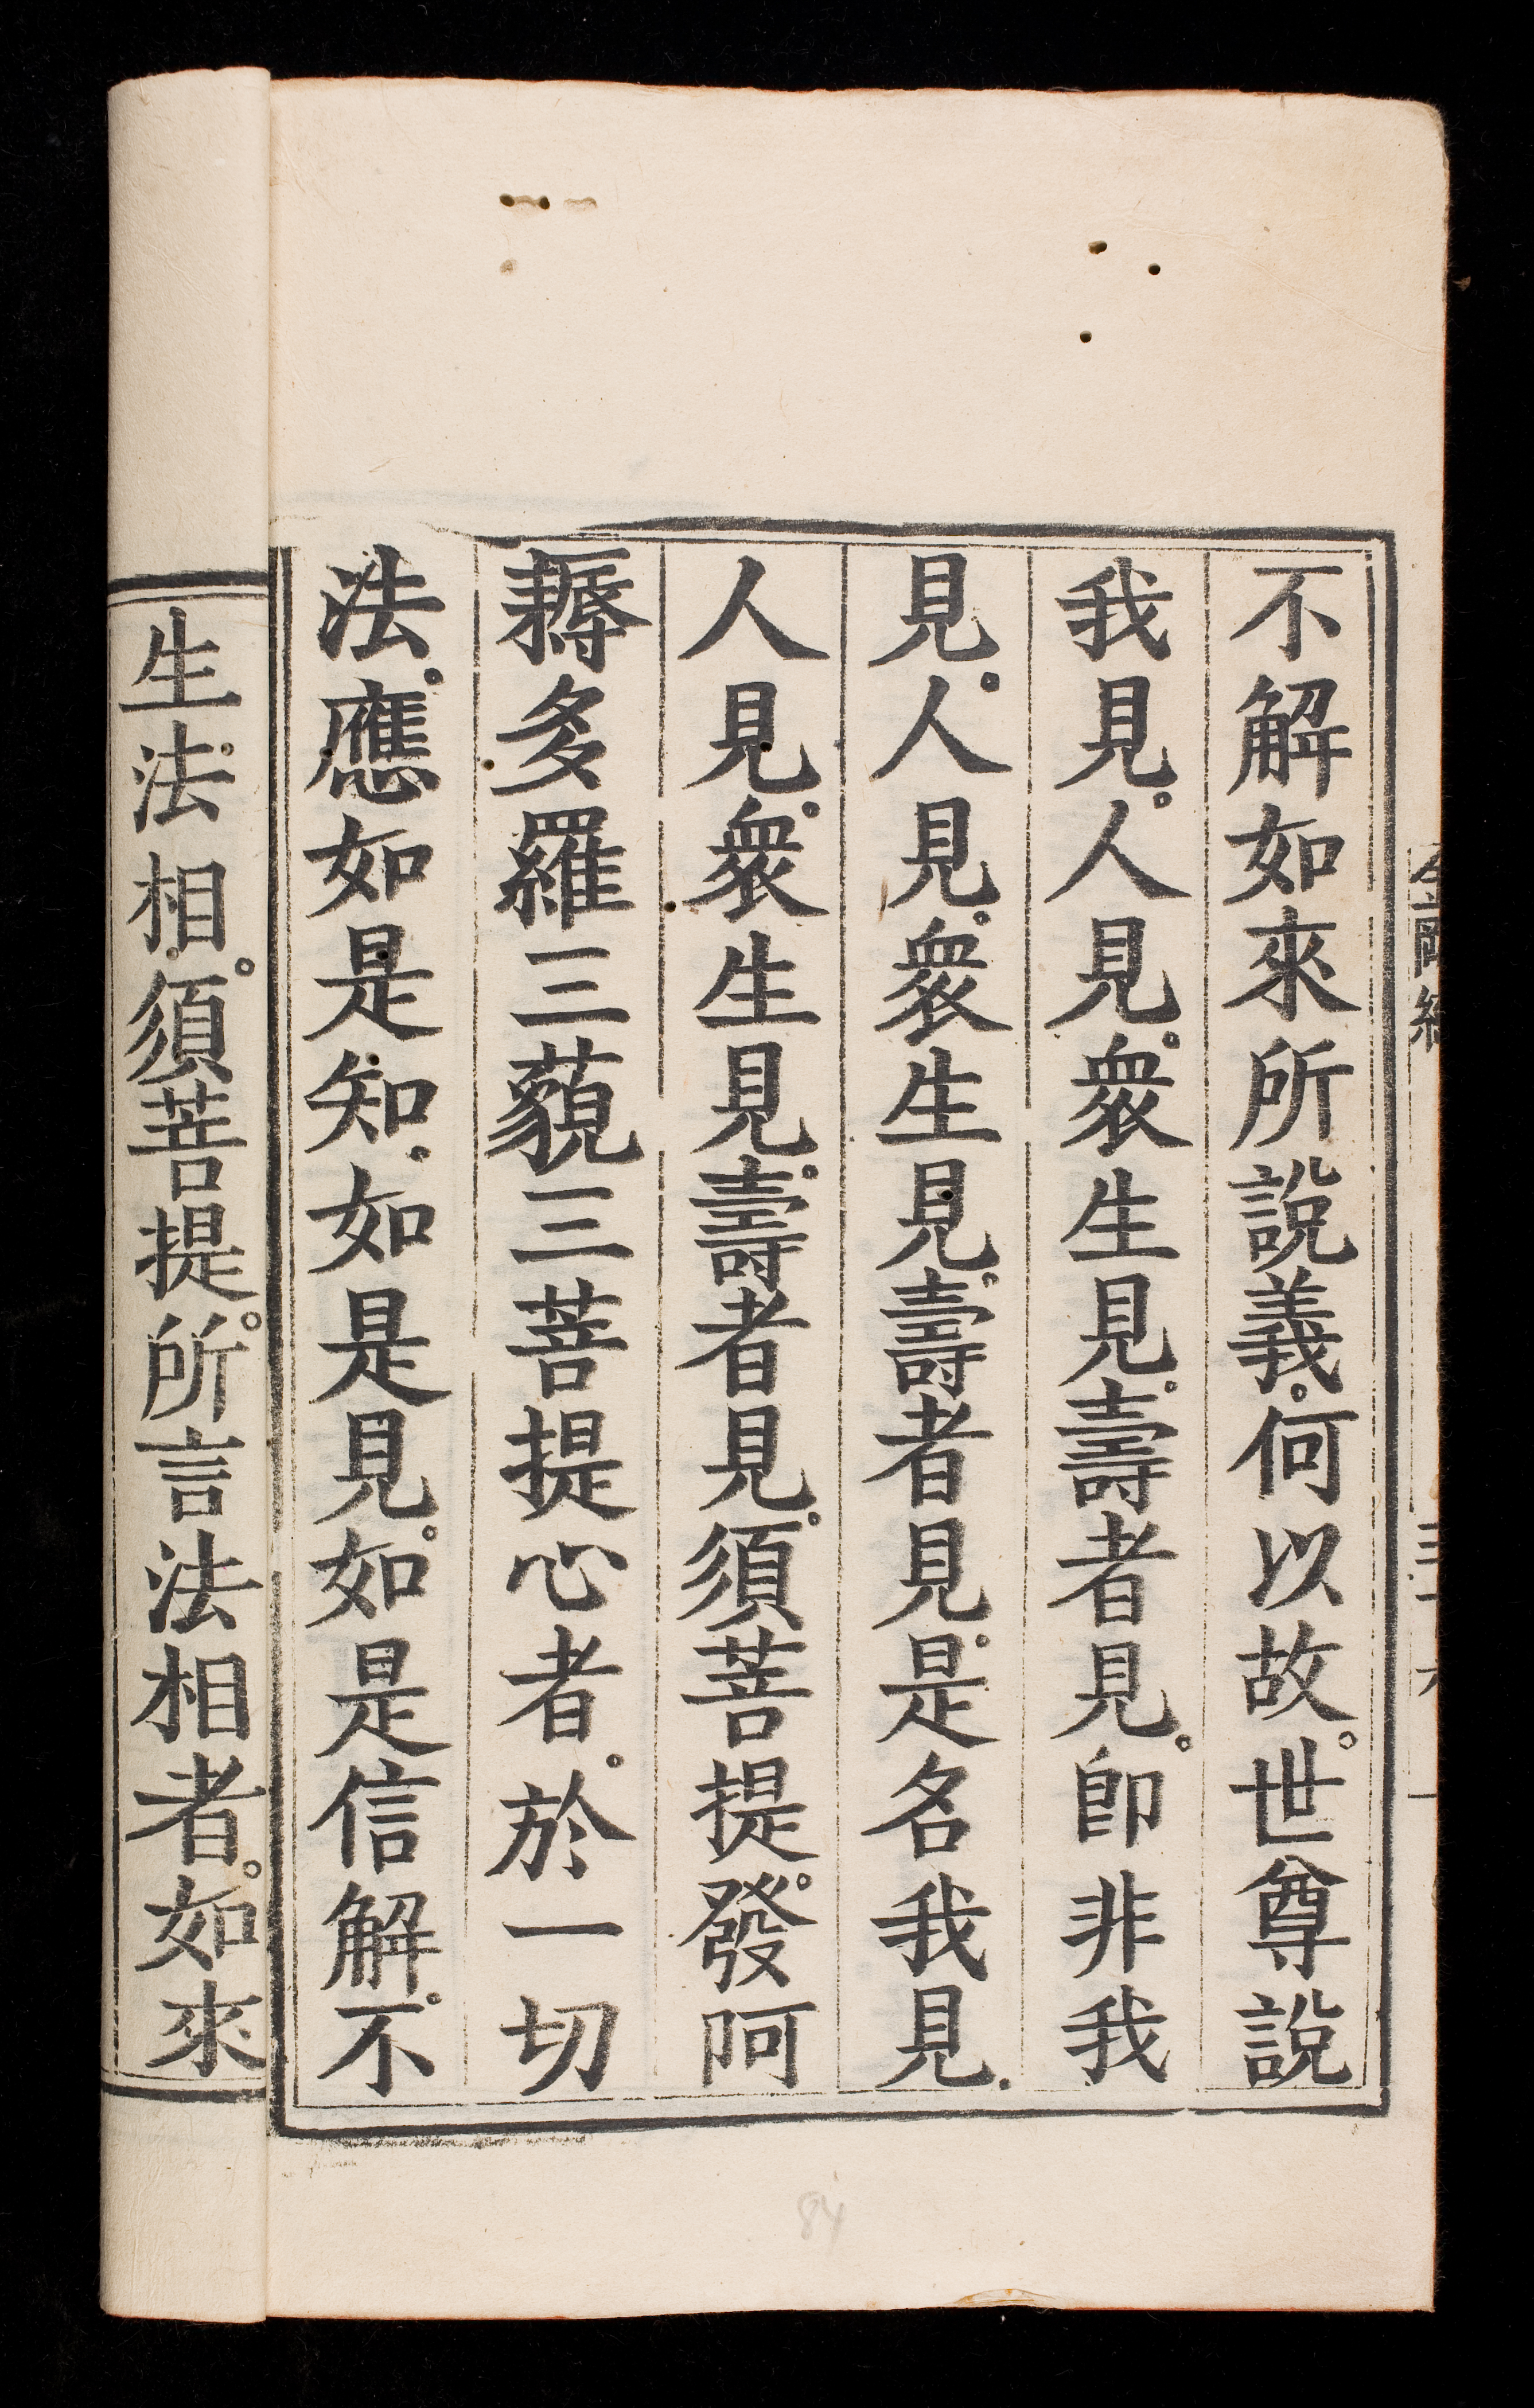 不解如來所說義。何以故。世尊說
我見。人見。衆生見。壽者見。卽非我
見。人見。衆生見。壽者見。是名我見。
人見。衆生見。壽者見。須菩提。發阿
耨多羅三藐三菩提心者。於一切
法。應如是知。如是見。如是信解。不
生法相。須菩提。所言法相者。如來
84